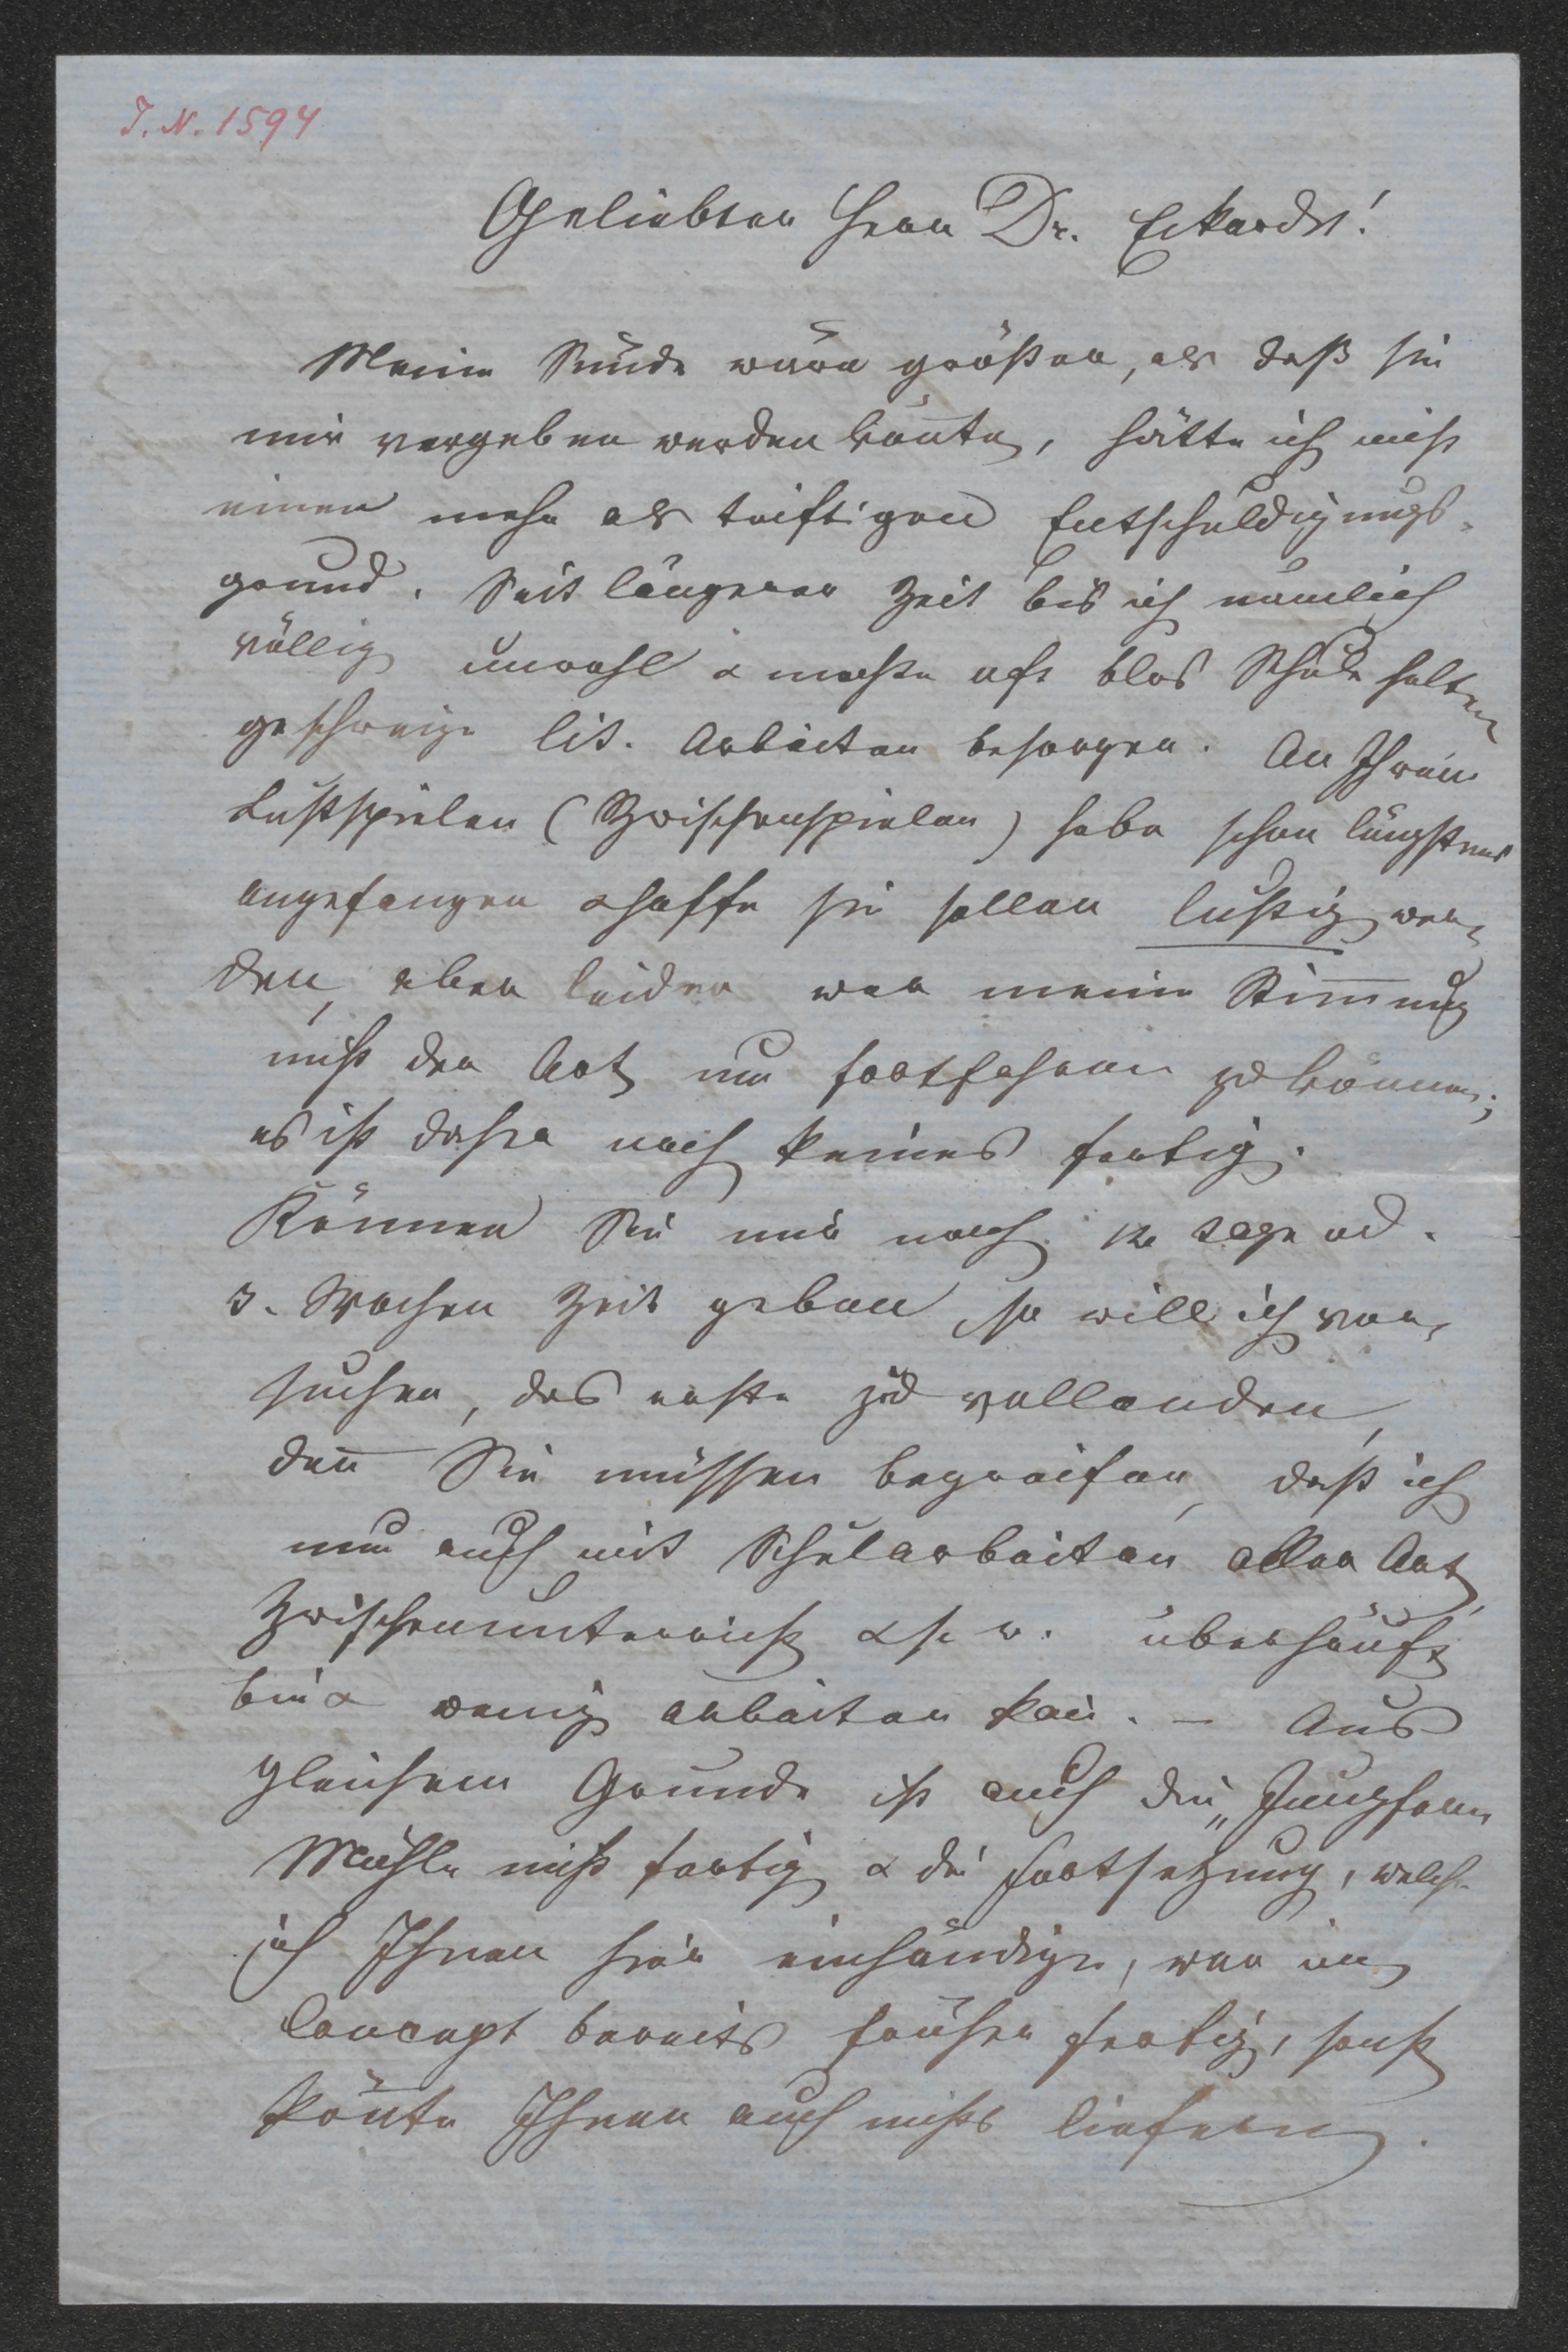 J. N. 1594
Geliebter Herr Dr. Eckardt!
Meine Sünde wäre größer, als daß sie
mir vergeben werden kon̄te, hätte ich nicht
einen mehr als triftigen Entschuldigungs-
grund. Seit längerer Zeit bin ich nämlich
völlig unwohl & mochte oft blos Schule halten
geschweige lit. Arbeiten besorgen. An Ihren
Lustspielen (Zwischenspielen) habe schon längstens
angefangen & hoffe sie sollen lustig wer-
den, aber leider war meine Stim̄ung
nicht der Art um fortfahren zu können;
es ist daher noch keines fertig.
Können Sie mir noch 14 Tage od.
3. Wochen Zeit geben, so will ich ver-
suchen, das erste zu vollenden,
den̄ Sie müssen begreifen, daß ich
nun auch mit Schularbeiten aller Art,
Zwischenunterricht & s. w. überhäuft
bin & wenig arbeiten kan̄. – Aus
gleichem Grunde ist auch die „Jungfern
Mühle nicht fertig & die Fortsetzung, welche
ich Ihnen hier einhändige, war im
Concept bereits früher fertig, sonst
kön̄te Ihnen auch nichts liefern.